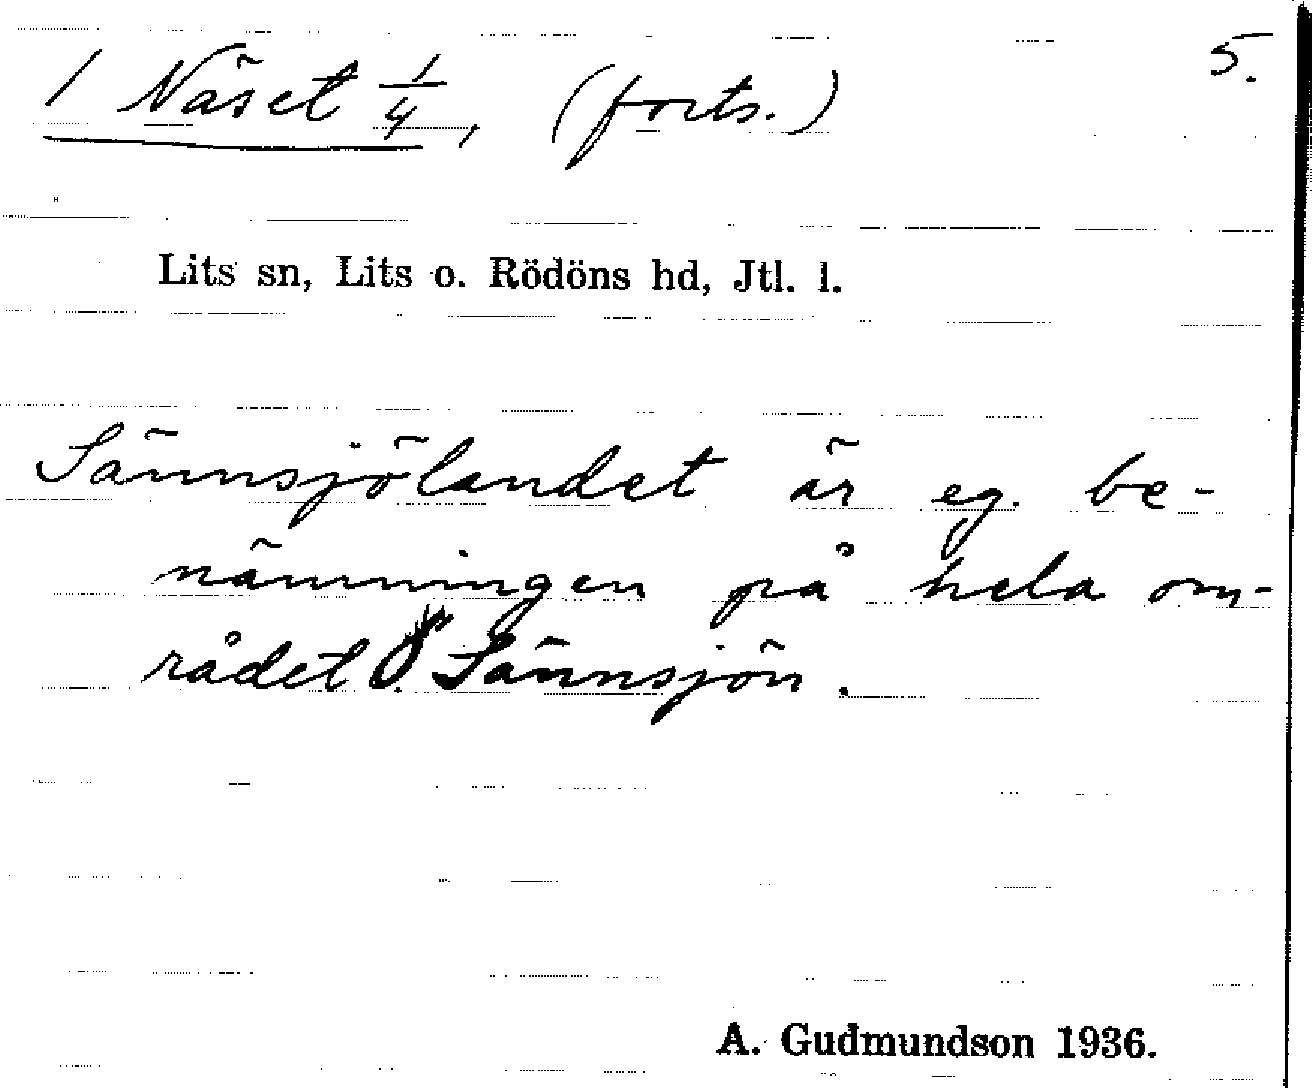 1 Näset 1/4, (forts.) 5.
Lits sn, Lits o. Rödöns hd, Jtl. l.
Sännsjölandet är eg. be-
nämningen på hela om-
rådet Ö Sännsjön.
A. Gudmundson 1936.